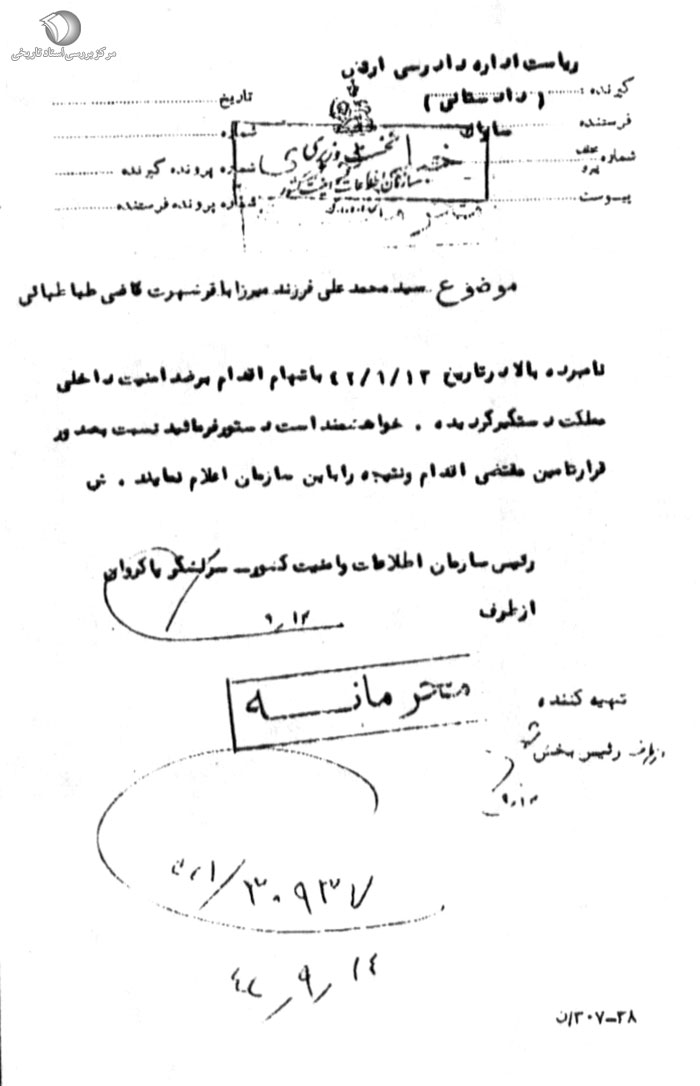 مرکز بررسی اسناد تاریخی
ریاست اداره دادرسی ارتش
(دادستانی)
گیرنده :
فرستنده
شماره
پیوست
تاریخ
شماره
شماره پرونده گیرنده
شماره پرونده فرستنده
نخست وزیری
سازمان اطلاعات و امنیت کشور
موضوع سید محمد علی فرزند میرزا باقر شهرت قاضی طباطبائی
نامبرده بالا در تاریخ ۴۲/۱/۱۳ باتهام اقدام برضد امنیت داخلی
مملکت دستگیر گردیده . خواهشمند است دستور فرمائید نسبت بصدور
قرار تامین مقتضی اقدام ونتیجه را باین سازمان اعلام نمایند . ش
رئیس سازمان اطلاعات وامنیت کشور ــ سرلشگر پاکروان
از طرف
۹/۱۲
محرمانه
تهیه کننده
رئیس بخش
/۳۰۹۳۷
۴۲/۹/۱۴
۳۰۷-۳۸/ن